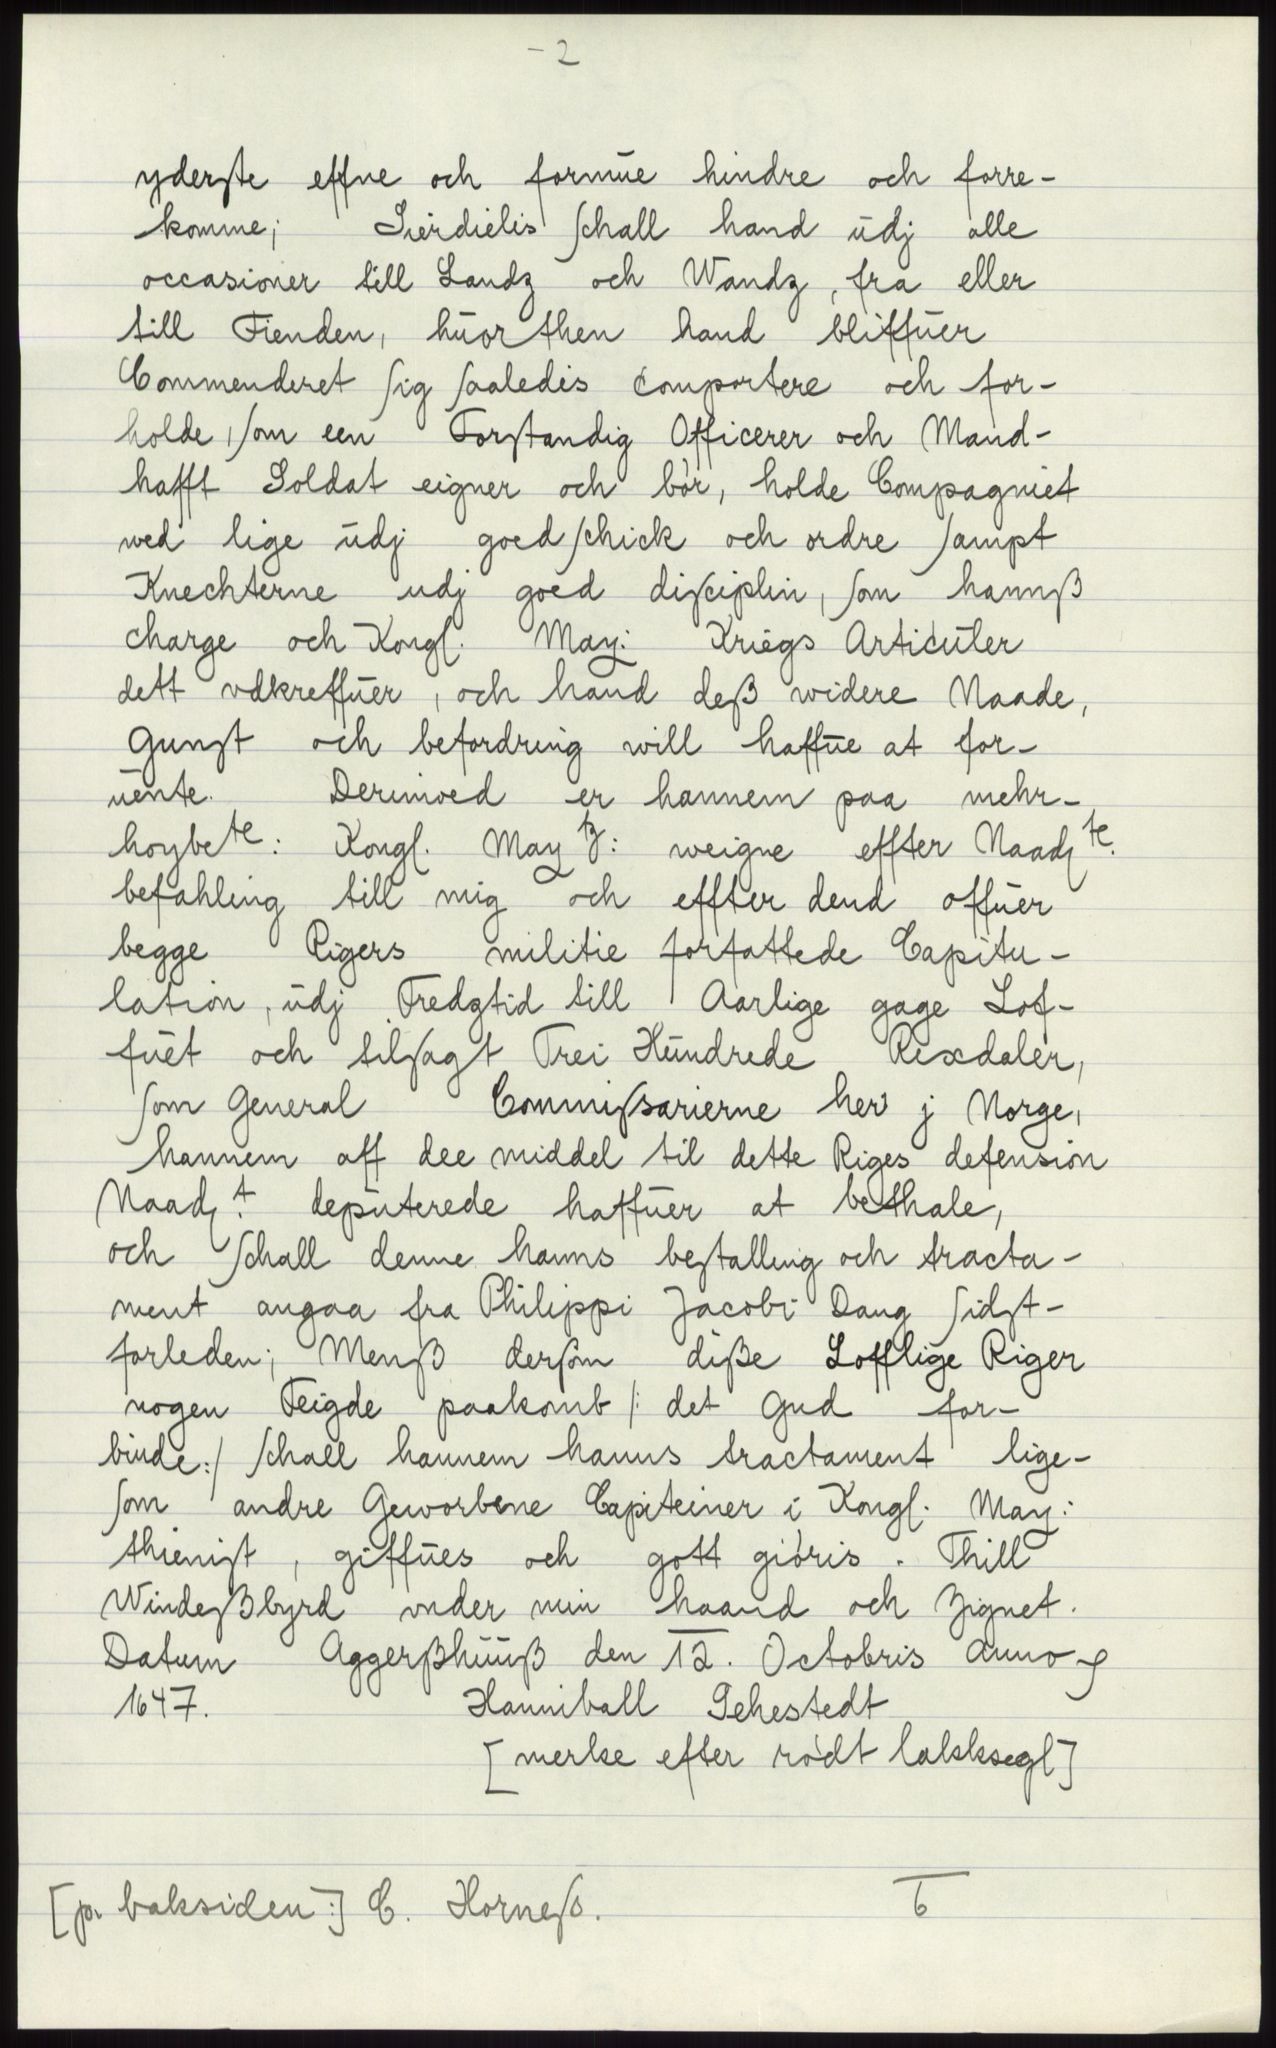 -2
yderste effne och formüe hindre och forre-
komme; Siérdielis schall hand üdj alle
occasioner till Landz och Wandz, fra eller
till Fienden, hüor then hand bliffüer
Commenderet sig saaledis comportere och for-
holde, som een Forstandig Officerer och Mand-
hafft Soldat eigner och bör, holde Compagniet
wed lige üdj goed schick och ordre sampt
Knechterne udj goed disciplin, som hannß
charge och Kongl. May: Kriegs Articuler
dett vdkreffüer, och hand deß widere Naade,
Gunst och befordring will haffüe at for-
üente. Derimoed er hannem paa mehr-
hoybete: Kongl. Maytz: weigne effter Naadte.
befahling till mig och effter dend offüer
begge Rigers militie forfattede Capitu-
lation, üdj Fredztid till Aarlige gage Lof-
füet och tilsagt Trei Hündrede Rixdaler,
som General Commissarierne her j Norge,
hannem aff dee middel til dette Riges defension
Naadt. deputerede haffüer at bethale,
och schall denne hanns bestalling och tracta-
ment angaa fra Philippi Jacobi Dang sidst-
forleden; Menß dersom diße Lofflige Riger
nogen Feigde paakomb /: det Gud for-
biude:/ schall hannem hanns tractament lige-
som andre Geworbene Capiteiner i Kongl. May:
thienist, giffües och gott giöris. Thill
Windeßbyrd vnder min haand och Zignet.
Datum Aggerßhüüß den 12. Octobris Anno
1647. Hanniball Sehestedt
[merke efter rödt lakksegl]
[på baksiden:] C. Horneß. 6